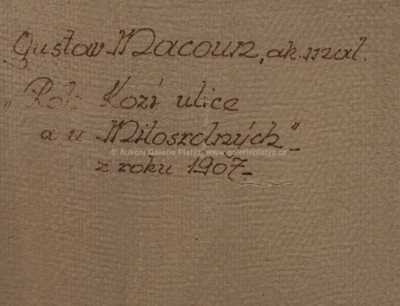 Gustav Macoun, ak. mal.
„Roh Kozí ulice
a u Milosrdných"
z roku 1907
© Aukční Galerie Platýz, www.galerieplatyz.cz